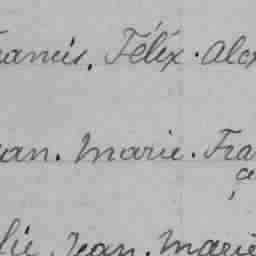 rancis. Félix. Alex
ean. Marie. Fra
lie Jean. Marie